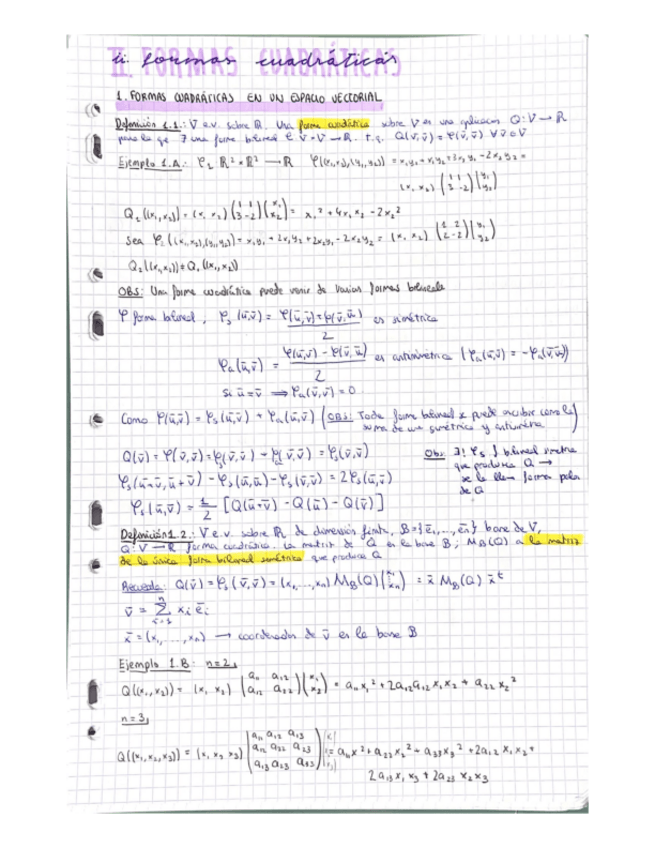 II. FORMAS CUADRÁTICAS
1. FORMAS CUADRÁTICAS EN UN ESPACIO VECTORIAL
Definición 1.1.: V e.v. sobre ℝ. Una forma cuadrática sobre V es una aplicacion Q: V → ℝ
para la que ∃ una forma bilineal φ: V × V → ℝ. t.q. Q(v̄) = φ(v̄, v̄) ∀ v̄ ∈ V
Ejemplo 1.A.: φ₁ ℝ² × ℝ² → ℝ φ((x₁,x₂),(y₁,y₂)) = x₁y₁ + x₁y₂ + 3x₂y₁ - 2x₂y₂ =
(x₁ x₂) (1 1 / 3 -2) (y₁ / y₂)
Q₁((x₁,x₂)) = (x₁ x₂) (1 1 / 3 -2) (x₁ / x₂) = x₁² + 4x₁x₂ - 2x₂²
Sea φ₂((x₁,x₂),(y₁,y₂)) = x₁y₁ + 2x₁y₂ + 2x₂y₁ - 2x₂y₂ = (x₁ x₂) (1 2 / 2 -2) (y₁ / y₂)
Q₂((x₁,x₂)) = Q₁((x₁,x₂))
OBS: Una forma cuadrática puede venir de varias formas bilineales
φ forma bilineal, φs(ū,v̄) = (φ(ū,v̄) + φ(v̄,ū)) / 2 es simétrica
φa(ū,v̄) = (φ(ū,v̄) - φ(v̄,ū)) / 2 es antisimétrica (φa(ū,v̄) = -φa(v̄,ū))
Si ū = v̄ ⟹ φa(v̄,v̄) = 0
Como φ(ū,v̄) = φs(ū,v̄) + φa(ū,v̄) (OBS: Toda forma bilineal se puede escribir como la
suma de una simétrica y antisimétrica)
Q(v̄) = φ(v̄,v̄) = φs(v̄,v̄) + φa(v̄,v̄) = φs(v̄,v̄)
φs(ū+v̄, ū+v̄) - φs(ū,ū) - φs(v̄,v̄) = 2φs(ū,v̄)
φs(ū,v̄) = 1/2 [Q(ū+v̄) - Q(ū) - Q(v̄)]
Obs: ∃! φs f bilineal simetrica
que produzca Q →
se le llama forma polar
de Q
Definición 1.2.: V e.v. sobre ℝ de dimensión finita, B = {ē₁, ..., ēn} base de V,
Q: V → ℝ forma cuadrática. La matriz de Q en la base B; M_B(Q) a la matriz
de la única forma bilineal simétrica que produce Q
Recuerda: Q(v̄) = φs(v̄,v̄) = (x₁,...,xn) M_B(Q) (x₁ / ⋮ / xn) = x̄ M_B(Q) x̄ᵗ
v̄ = Σ xᵢ ēᵢ
x̄ = (x₁, ..., xn) → coordenadas de v̄ en la base B
Ejemplo 1.B: n=2;
Q((x₁,x₂)) = (x₁ x₂) (a₁₁ a₁₂ / a₁₂ a₂₂) (x₁ / x₂) = a₁₁x₁² + 2a₁₂x₁x₂ + a₂₂x₂²
n=3;
Q((x₁,x₂,x₃)) = (x₁ x₂ x₃) (a₁₁ a₁₂ a₁₃ / a₁₂ a₂₂ a₂₃ / a₁₃ a₂₃ a₃₃) = a₁₁x² + a₂₂x₂² + a₃₃x₃² + 2a₁₂x₁x₂ +
2a₁₃x₁x₃ + 2a₂₃x₂x₃